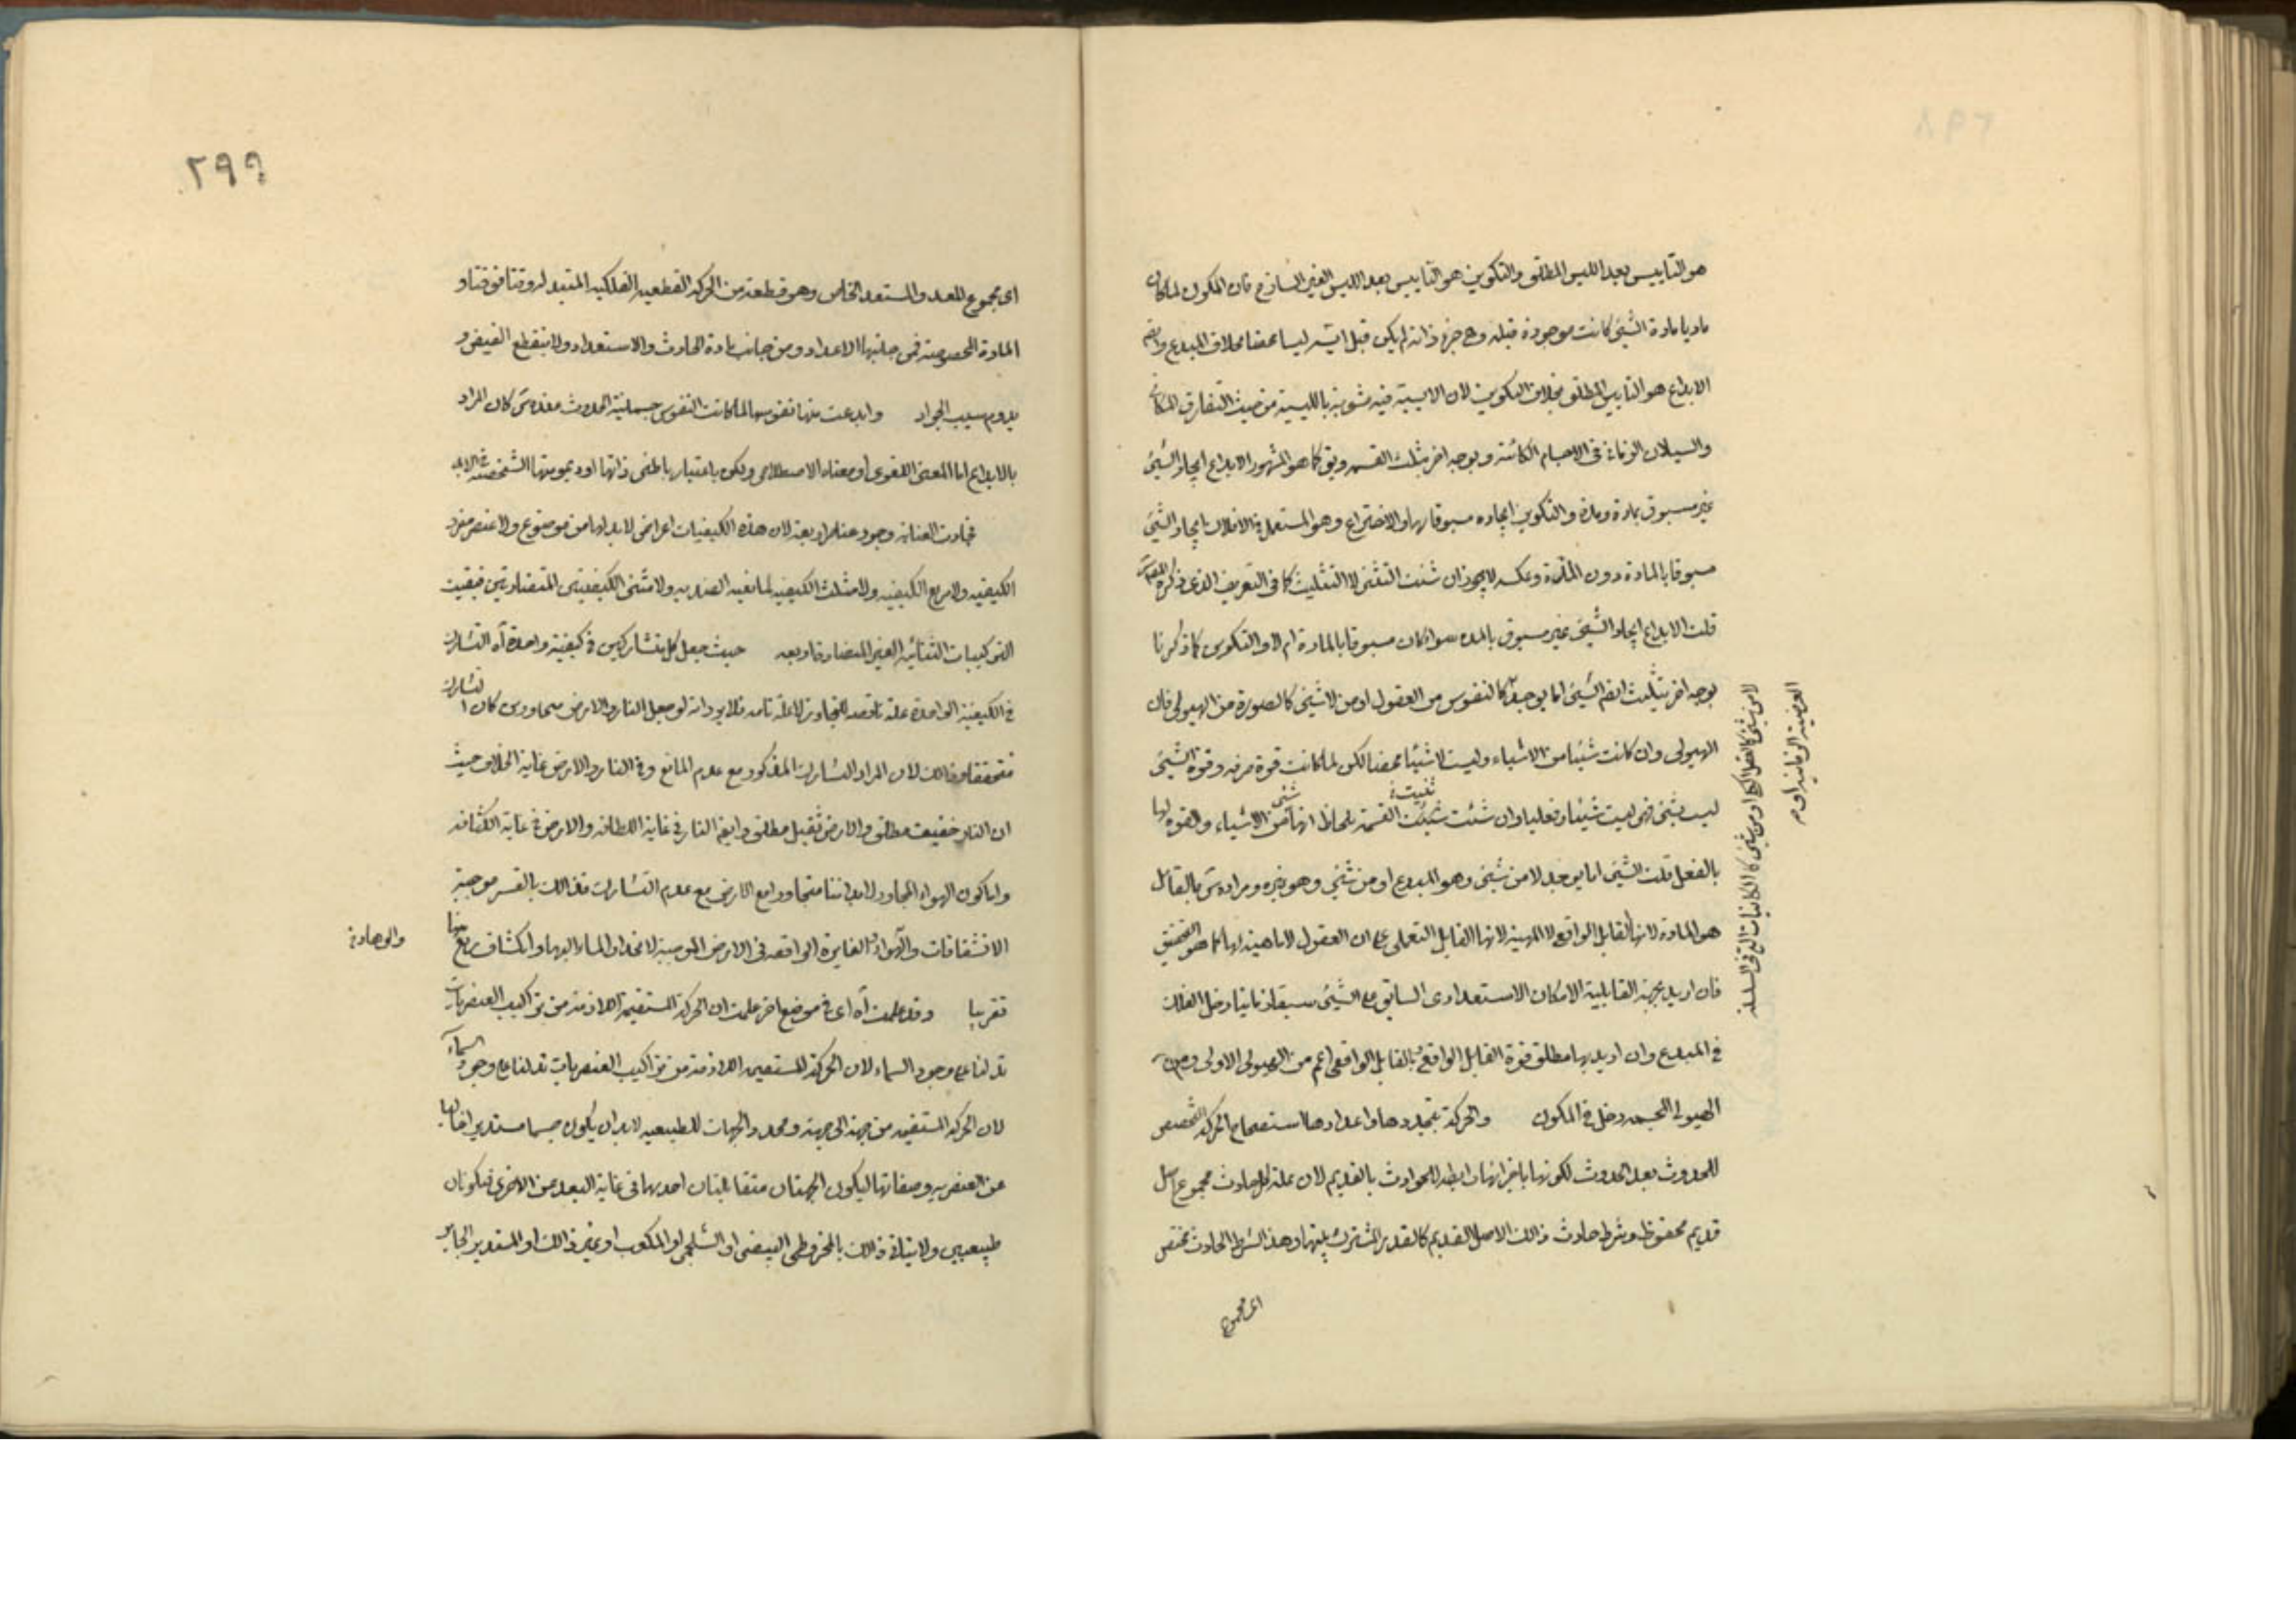 هو التأييس بعد الليس المطلق والتكوين هو التأييس بعد الليس الغير الساذج فان المكون لما كان
ماديا مادة الشيئ كانت موجودة قبله وهى جزء ذاته لم يكن قبل ايسه ليسا محضا بخلاف المبدع وايضا
الابداع هو التأييس المطلق بخلاف التكوين لان الايسية فيه مشوبة بالليسية من حيث التفارق المكانى
والسيلان الزمانى فى الاجسام الكائنة وبوجه اخر بثلث القسمة ويق كما هو المشهور الابداع ايجاد الشيئ
غير مسبوق بمادة ومدة والتكوين ايجاده مسبوقا بهما والاختراع وهو المستعمل فى الافلاك ايجاد الشيئ
مسبوقا بالمادة دون المدة وعكسه لا يجوز ان شئت التثنى لا التثليث كما فى التعريف الذى ذكره المص
قلت الابداع ايجاد الشيئ غير مسبوق بالمدة سواء كان مسبوقا بالمادة ام لا والتكوين كما ذكرنا
بوجه اخر بتثليث ايضا الشيئ اما يوجد كالنفوس من العقول او من لا شيئ كالصورة من الهيولى فان
لا من شيئ كالعقل الكل او من شيئ كالكائنات التى فى السلسلة
العرضية الزمانية او م
الهيولى وان كانت شيئا من الاشياء وليست لا شيئا محضا لكن لما كانت قوة صرفة وقوة الشيئ
ليست بشيئ فهى ليست شيئا فعليا وان شئت ثنيت القسمة بلحاظ انها شيئ من الاشياء والقوة لها
بالفعل قلت الشيئ اما يوجد لا من شيئ وهو المبدع او من شيئ وهو غيره ومراده س بالقابل
هو المادة لانها القابل الواقعى لا المهية لانها القابل التعملى على ان العقول لا ماهية لها كما هو التحقيق
فان اريد بجهة القابلية الامكان الاستعدادى السابق على الشيئ سبقا زمانيا دخل الفلك
فى المبدع وان اريد بها مطلق قوة القابل الواقعى بالقابل الواقعى اعم من الهيولى الاولى ومن
الهيولى المجسمة دخل فى المكون والحركة بتجددها واعدادها استصحاح الحركة المخصص
للحدوث بعد الحدوث لكونها باجزائها رابطة للحوادث بالقديم لان علة كل حادث مجموع اصل
قديم محفوظ وشرط حادث ذلك الاصل القديم كالقدر المشترك بينها وهذا الشرط الحادث مختص
اى مجموع
٢٩٩
اى مجموع المعد والمستعد الخاص وهو قطعة من الحركة القطعية الفلكية المتبدلة وقتا فوقتا و
المادة المخصوصة فمن جانبها الاعداد ومن جانب مادة الحادث والاستعداد ولا ينقطع الفيض و
يدوم سيب الجواد وابدعت منها نفوسها لما كانت النفوس جسمانية الحدوث عنده س كان المراد
بالابداع اما المعنى اللغوى او معناه الاصطلاحى ويكون باعتبار باطنى ذاتها او ديمومتها الشخصية فى الابد
فجادت العناية وجود عناصر اربعة لان هذه الكيفيات اعراض لا بد لها من موضوع ولا عنصر مفرد
الكيفية ولا مربع الكيفية ولا مثلث الكيفية لما فيه الضدية ولا مثنى الكيفيتين المتضادتين فبقيت
التركيبات الثنائية الغير المتضادة اربعة حيث جعل كل متشاركين فى كيفية واحدة آه التشارك
فى الكيفية الواحدة علة ناقصة للتجاور لا علة تامة فلا يرد انه لو جعل النار والارض متجاورين كان التشارك
متحققا وذلك لان المراد التشارك المذكور مع عدم المانع وفى النار والارض غاية الخلاف حيث
ان النار خفيف مطلق والارض ثقيل مطلق وايضا النار فى غاية اللطافة والارض فى غاية الكثافة
واما كون الهواء المجاور لابداننا متجاورا مع الارض مع عدم التشارك فذلك بالقسر موجبة
الانشقاقات والاهوية الغايرة الواقعة فى الارض الموجبة لانحدار الماء اليها وانكشاف ربع منها
والوهاد
تقريبا وقد علمت آه اى فى موضع اخر علمت ان الحركة المستقيمة اللازمة من تراكيب العنصريات
تدلنا على وجود السماء لان الحركة المستقيمة اللازمة من تراكيب العنصريات تدلنا على وجود السماء
لان الحركة المستقيمة من جهة الى جهة ومحدد الجهات الطبيعية لا بد ان يكون جسما مستديرا خاليا
عن العنصرية وصفاتها ليكون الجهتان متقابلتان احديهما فى غاية البعد عن الاخرى فتكونان
طبيعيين ولا يتاتى ذلك بالمخروطى البيضى او الشلجمى او المكعب او غير ذلك او المستدير الجابر